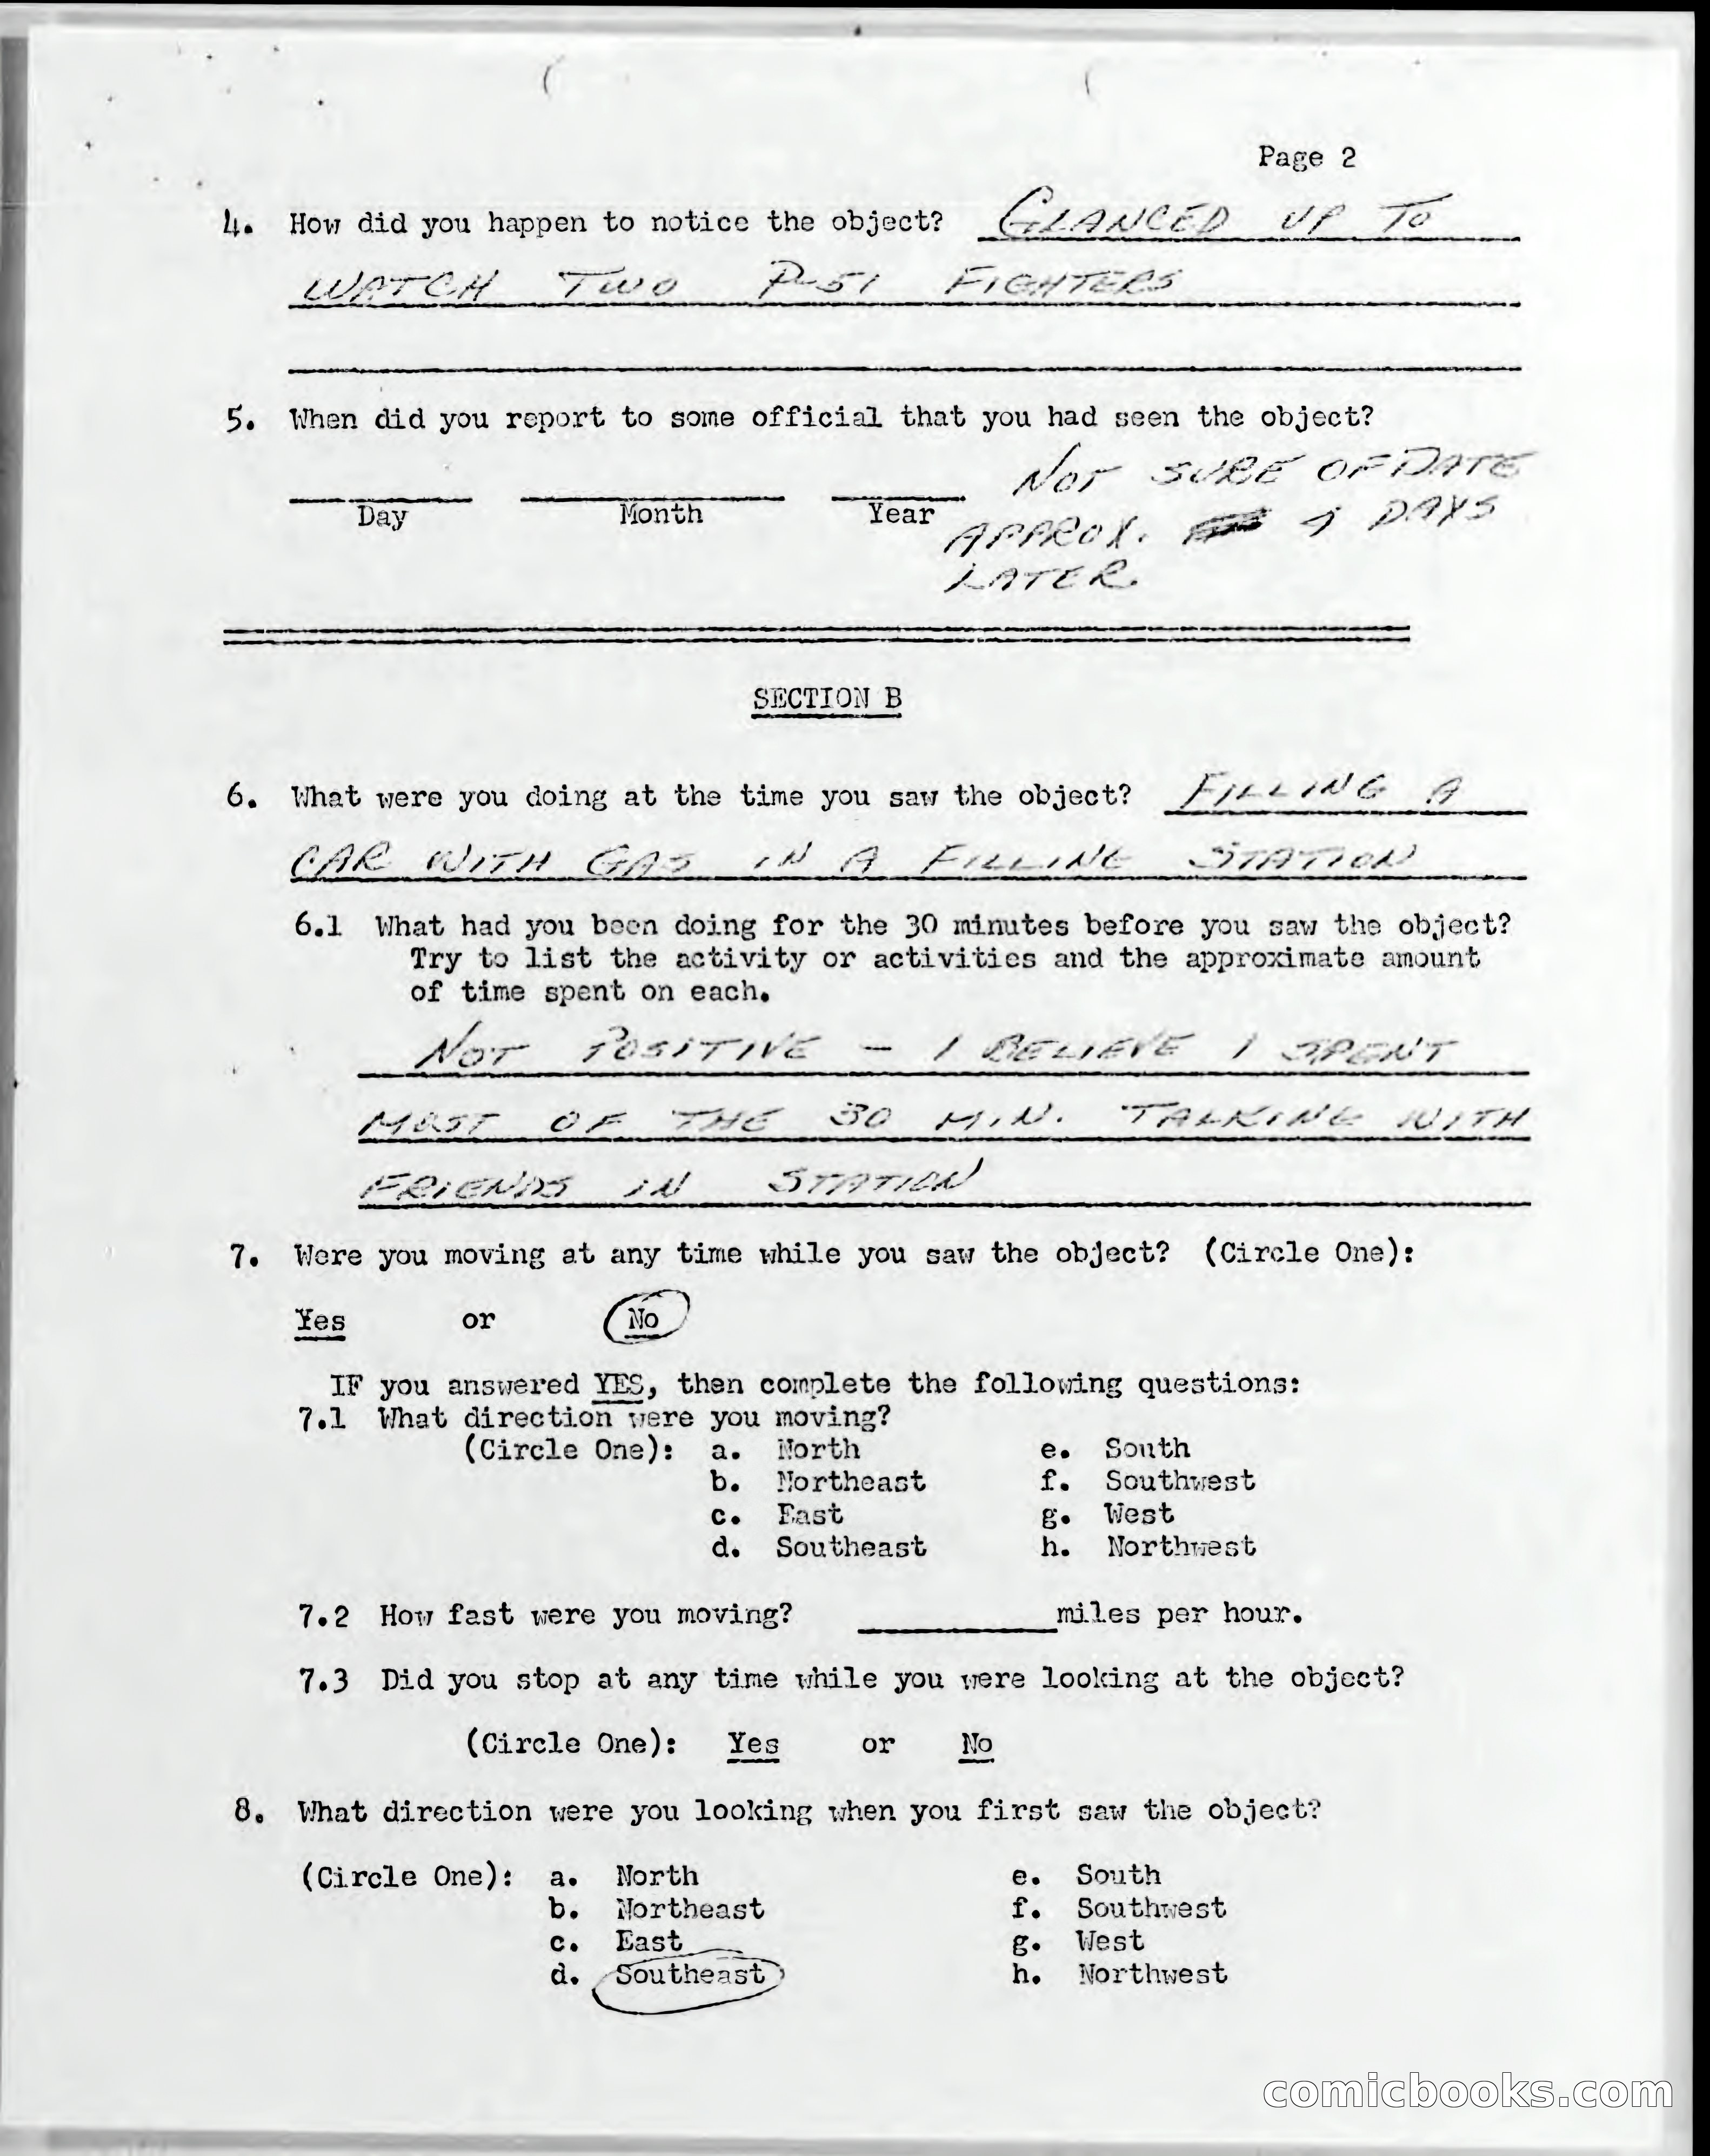 Page 2
4. How did you happen to notice the object? GLANCED UP TO
WATCH TWO P-51 FIGHTERS
5. When did you report to some official that you had seen the object?
NOT SURE OF DATE
Day Month Year APPROX. 4 DAYS
LATER.
SECTION B
6. What were you doing at the time you saw the object? FILLING A
CAR WITH GAS IN A FILLING STATION
6.1 What had you been doing for the 30 minutes before you saw the object?
Try to list the activity or activities and the approximate amount
of time spent on each.
NOT POSITIVE - I BELIEVE I SPENT
MOST OF THE 30 MIN. TALKING WITH
FRIENDS IN STATION
7. Were you moving at any time while you saw the object? (Circle One):
Yes or No
IF you answered YES, then complete the following questions:
7.1 What direction were you moving?
(Circle One): a. North e. South
b. Northeast f. Southwest
c. East g. West
d. Southeast h. Northwest
7.2 How fast were you moving? miles per hour.
7.3 Did you stop at any time while you were looking at the object?
(Circle One): Yes or No
8. What direction were you looking when you first saw the object?
(Circle One): a. North e. South
b. Northeast f. Southwest
c. East g. West
d. Southeast h. Northwest
comicbooks.com